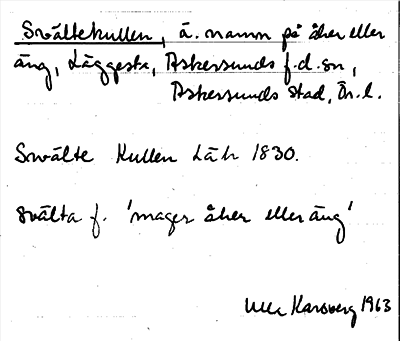 Svältekullen, ä. namn på åker eller
äng, Läggesta, Askersunds f.d. sn,
Askersunds stad, Ör. l.
Swälte Kullen Läh 1830.
svälta f. 'mager åker eller äng'
Ulla Karsberg 1963